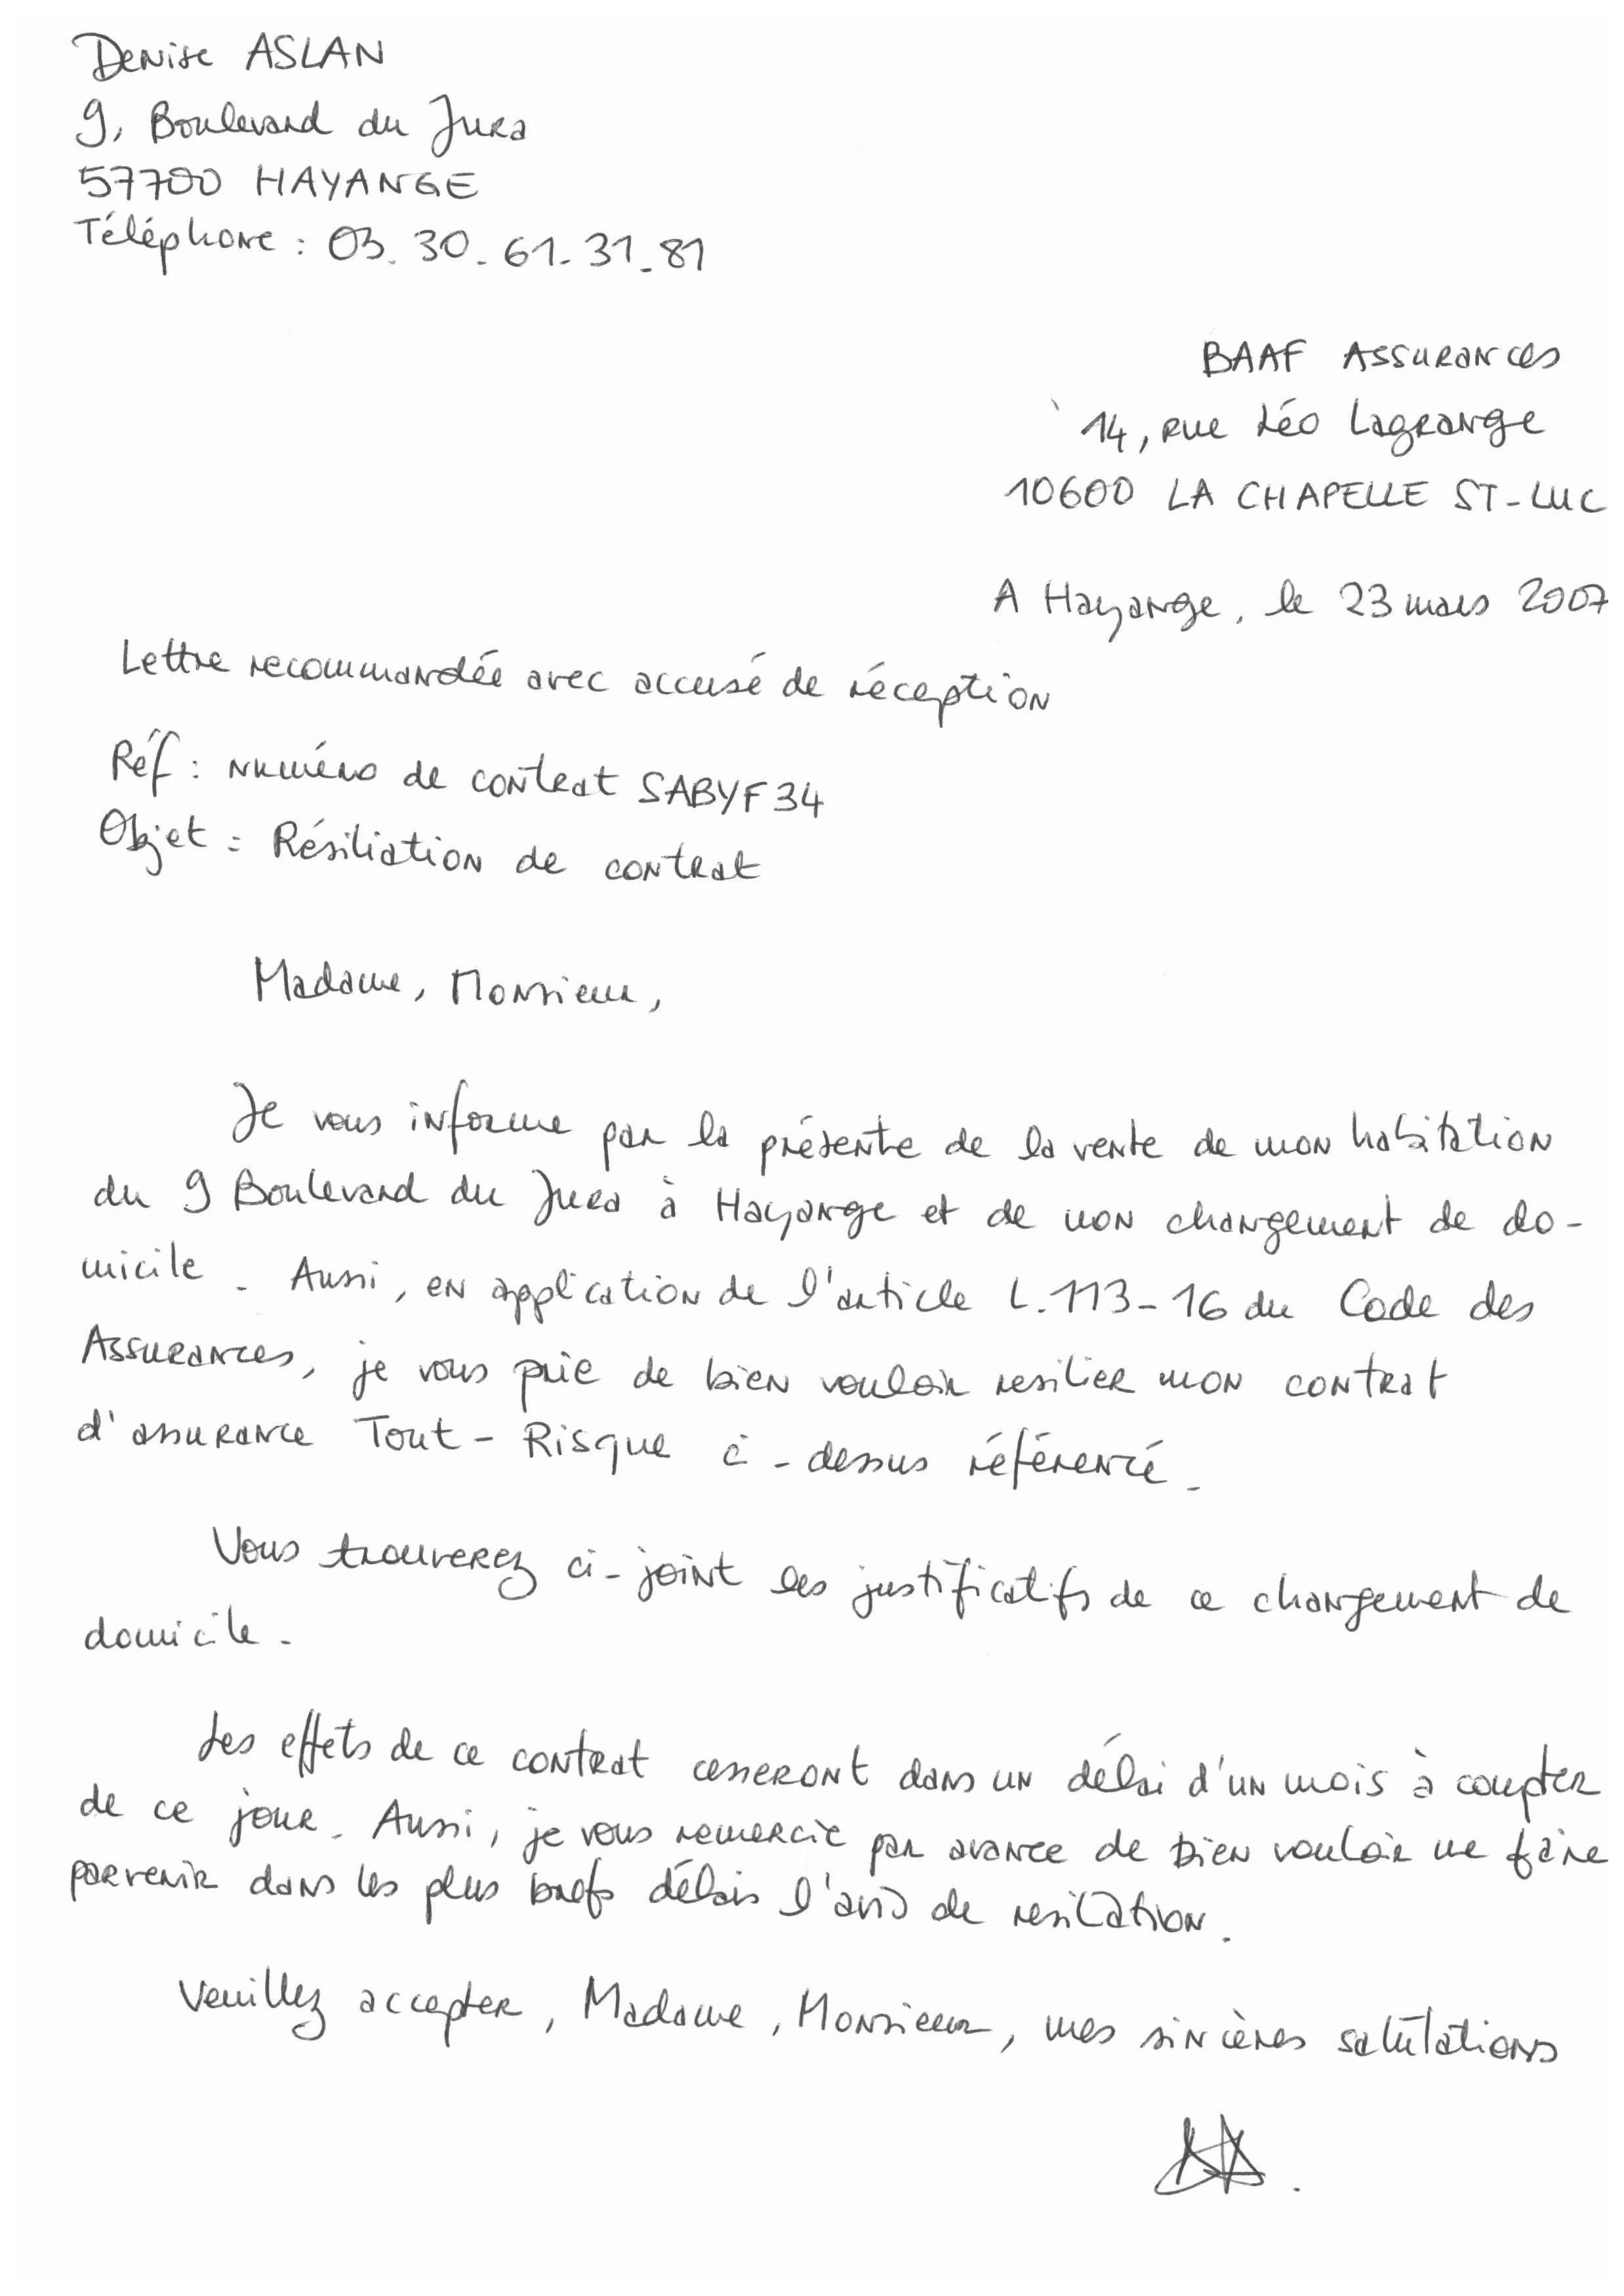 Denise ASLAN
9, Boulevard du Jura
57700 HAYANGE
Téléphone : 03. 30. 61. 31. 81
BAAF Assurances
14, rue Léo Lagrange
10600 LA CHAPELLE ST-LUC
A Hayange, le 23 mars 2007
Lettre recommandée avec accusé de réception
Réf : Numéro de contrat SABYF34
Objet : Résiliation de contrat
Madame, Monsieur,
Je vous informe par la présente de la vente de mon habitation
du 9 Boulevard du Jura à Hayange et de mon changement de do-
micile. Aussi, en application de l'article L.113-16 du Code des
Assurances, je vous prie de bien vouloir resilier mon contrat
d'assurance Tout-Risque ci-dessus référencé.
Vous trouverez ci-joint les justificatifs de ce changement de
domicile.
Les effets de ce contrat cesseront dans un délai d'un mois à compter
de ce jour. Aussi, je vous remercie par avance de bien vouloir me faire
parvenir dans les plus brefs délais l'avis de resiliation.
Veuillez accepter, Madame, Monsieur, mes sincères salutations